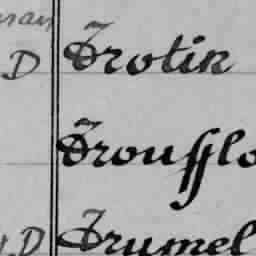 D Trotin
Troufflo
D Trumel